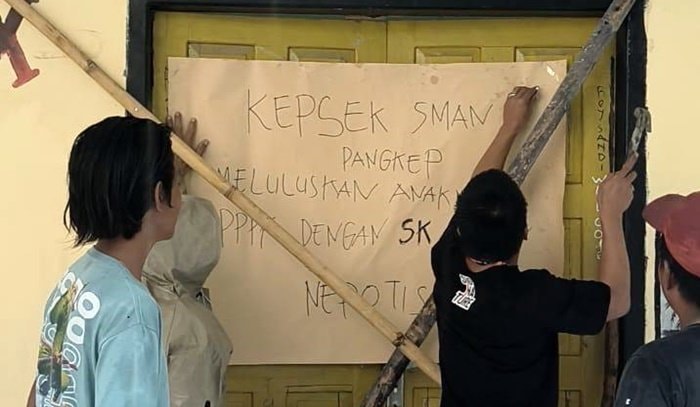 KEPSEK SMAN
PANGKEP
MELULUSKAN ANAK
PPPK DENGAN SK
NEPOTIS